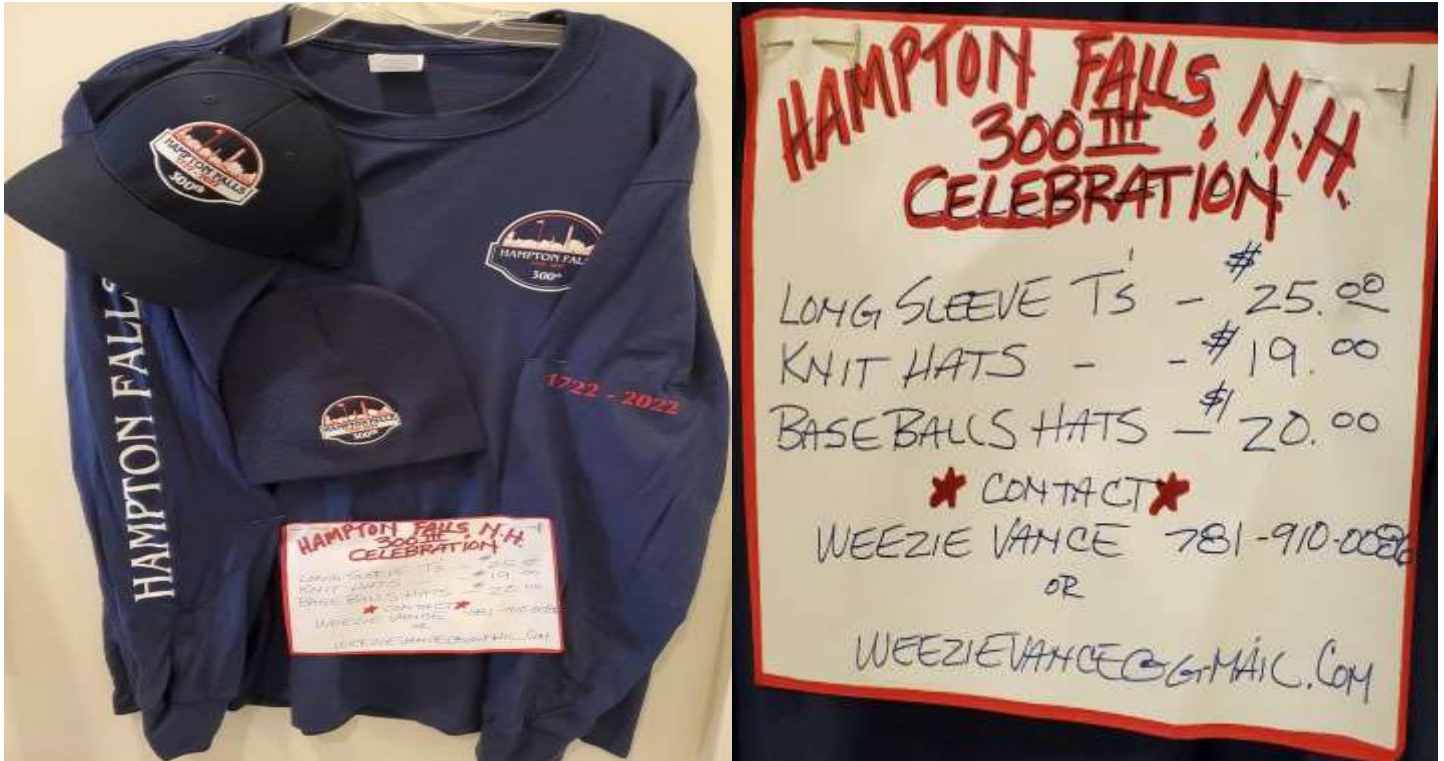 HAMPTON FALLS
300th
HAMPTON FALLS
HAMPTON FAL
300th
1722 - 2022
HAMPTON FALLS
300th
HAMPTON FALLS, N.H.
300TH
CELEBRATION
LONG SLEEVE T'S - 25.00
KNIT HATS $19.00
BASEBALLS HATS
* CONTACT *
WEEZIE VANCE 781-910-0086
OR
WEEZIEVANCE@GMAIL.COM
HAMPTON FALLS, N.H.
300TH
CELEBRATION
LONG SLEEVE T'S - $25.00
KNIT HATS - - $19.00
BASEBALLS HATS - $20.00
* CONTACT *
WEEZIE VANCE 781-910-0086
OR
WEEZIEVANCE@G-MAIL.COM